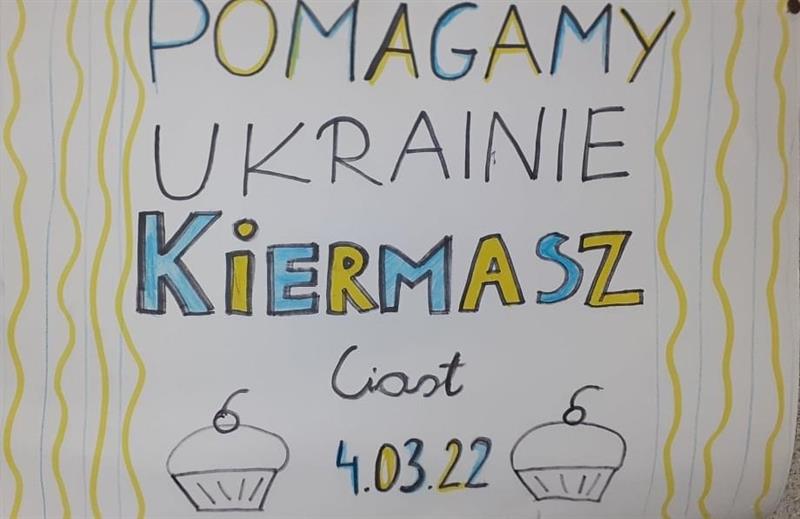 POMAGAMY
UKRAINIE
KiERMASZ
Ciast
4.03.22